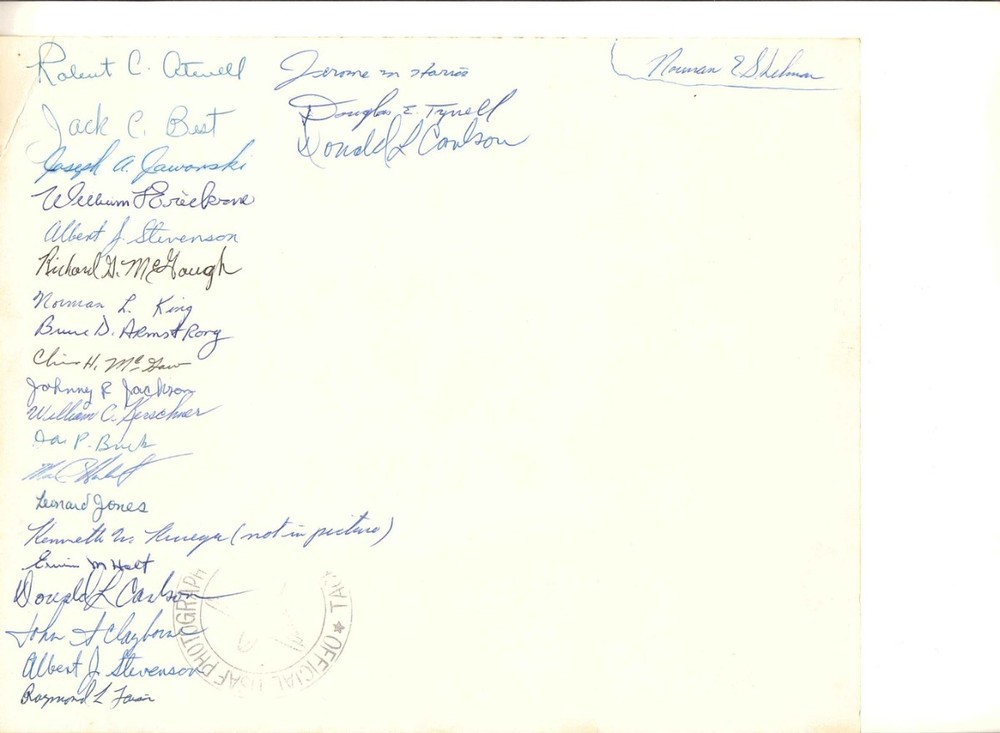 Robert C. Atwell
Jack C. Best
Joseph A. Jaworski
William
Albert J. Stevenson
Richard G. McGough
Norman L. King
Bruce D. Armstrong
H. McGaw
Johnny R Jackson
William C. Kerschner
P.
Leonard Jones
Kenneth W. (not in picture)
M Holt
Donald L Carlson
John A Clayborne
Albert J. Stevenson
Raymond L
Jerome M
Douglas E. Tyrrell
Donald L Carlson
Norman E
OFFICIAL USAF PHOTOGRAPH